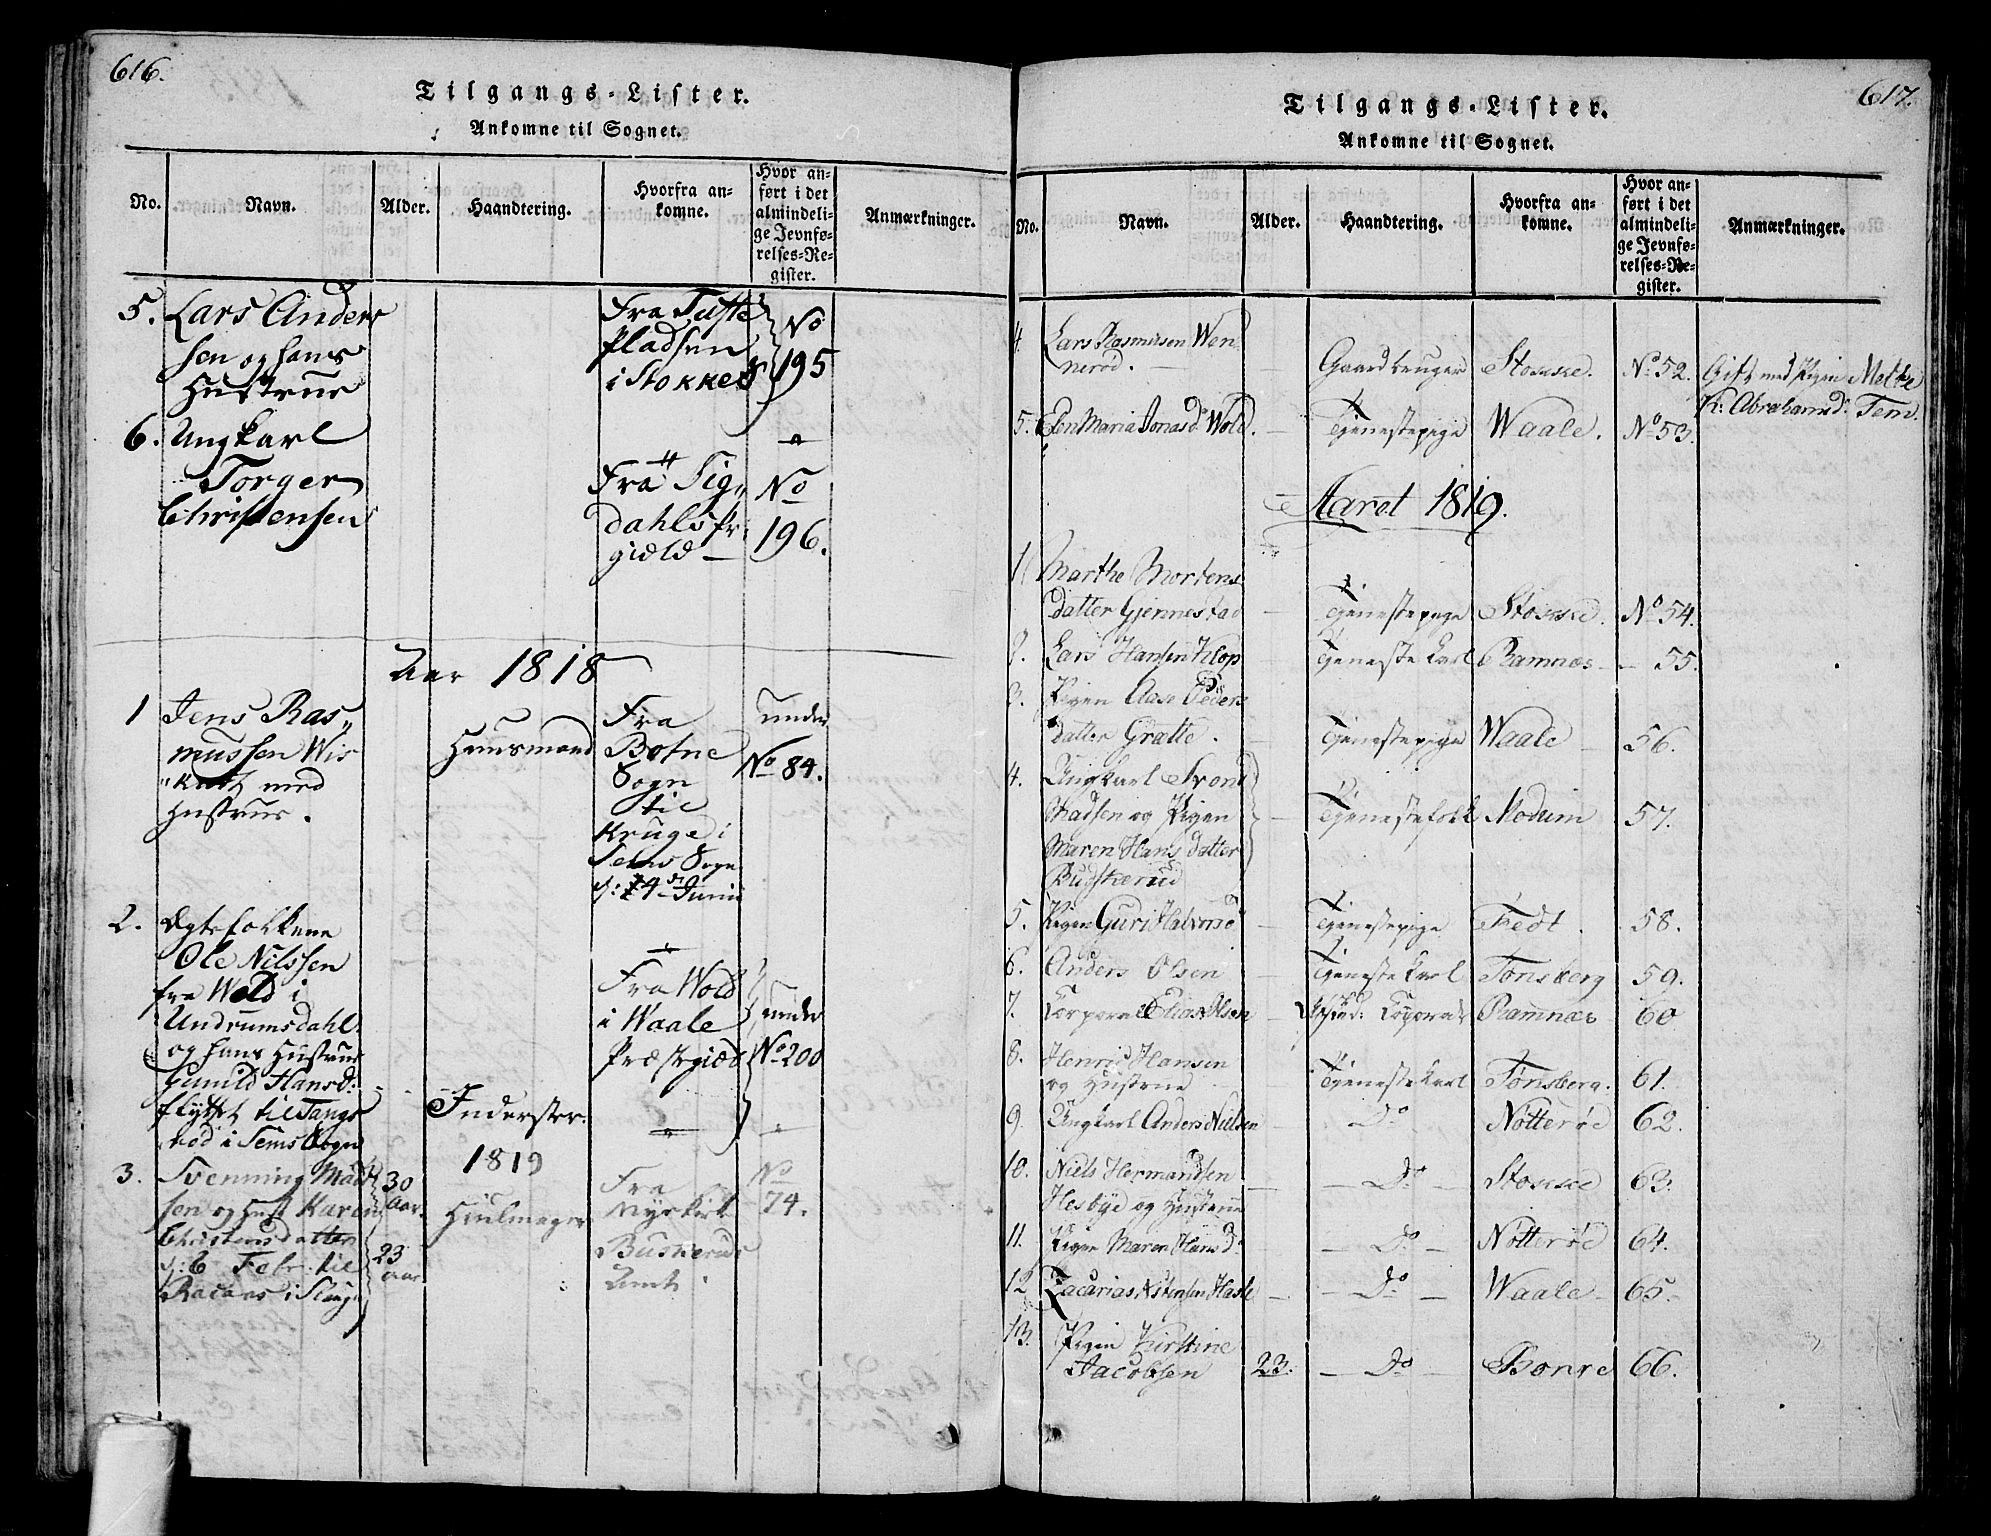 616.
Tilgangs-Lister.
Ankomne til Sognet.
No.
Navn.
Alder.
Haandtering.
Hvorfra an-
komne.
Hvor an-
ført i det
almindeli-
ge Jevnfø-
relses-Re-
gister.
Anmærkninger.
5. Lars Anders
sen og hans
Hustrue
Fra Tufte
Pladsen
i Stokke
No
195
6. Ungkarl
Torger
Christensen
Fra Sig„
dahls Pr.
gield —
No
196.
Aar 1818
1 Jens Ras„
mussen Wis
med
Hustrue.
Huusmand
Fra
Botne
Sogn
til
Kruge i
Sems Sogn
d: 14de Junii
under
No 84.
2. Ægtefolkene
Ole Nilssen
fra Wold i
Undrumsdahl
og hans Hustrue
Gunild Hansd:
flyttet til Tangs
rød i Sems Sogn
Inderster.
Fra Wold
i Waale
Præstegield
under
No 200
1819
3. Svenning Mad
sen og Hust Karen
Christensdatter
d: 6 Febr. til
i Slaugn
30
Aar.
23
Aar
Hiulmager
Fra
Nyekirk
Buskerud
Amt
No
74.
617.
Tilgangs-Lister.
Ankomne til Sognet.
No.
Navn.
Alder.
Haandtering.
Hvorfra an-
komne.
Hvor an-
ført i det
almindeli-
ge Jevnfø-
relses-Re-
gister.
Anmærkninger.
4. Lars Rasmusen Wen
nerød. — Gaardbruger Stokke. No 52. Gift med Pigen Mette
K: Abrahamsd. Tem.
5. Elen Maria Jonasd Wold. — Tjenestepige Waale. No 53.
Aaret 1819.
1 Marthe Mortens
datter Gjennestad — Tjenestepige Stokke. No 54.
2. Lars Hansen Klop Tjeneste Karl Ramnæs — 55.
3. Pigen Aase Peders
datter Gratte. Tjenestepige Waale 56.
4. Ungkarl Trond
Madsen og Pigen — Tjenestefolk Modum 57.
Maren Hans datter
Buskerud
5. Pigen Guri Halvorsd — Tjenestepige Tredt. 58.
6. Anders Olsen — Tjeneste Karl Tønsberg 59.
7. Corporal Elias Olsen — Afskd: Coporal Ramnæs 60
8. Henric Hansen
og Hustrue Tjeneste Karl Tønsberg. 61.
9. Ungkarl Anders Nielsen Do Nøtterøe 62.
10. Niels Hermandsen — Do — Stokke 63.
Hesbye og Hustrue
11. Pigen Maren Hans D: — Do — Nøtterøe 64.
12 Zacarias Astensen Hasle — Do — Waale 65.
13. Pigen Kirstine
Jacobsen 23. — Do — Borre 66.